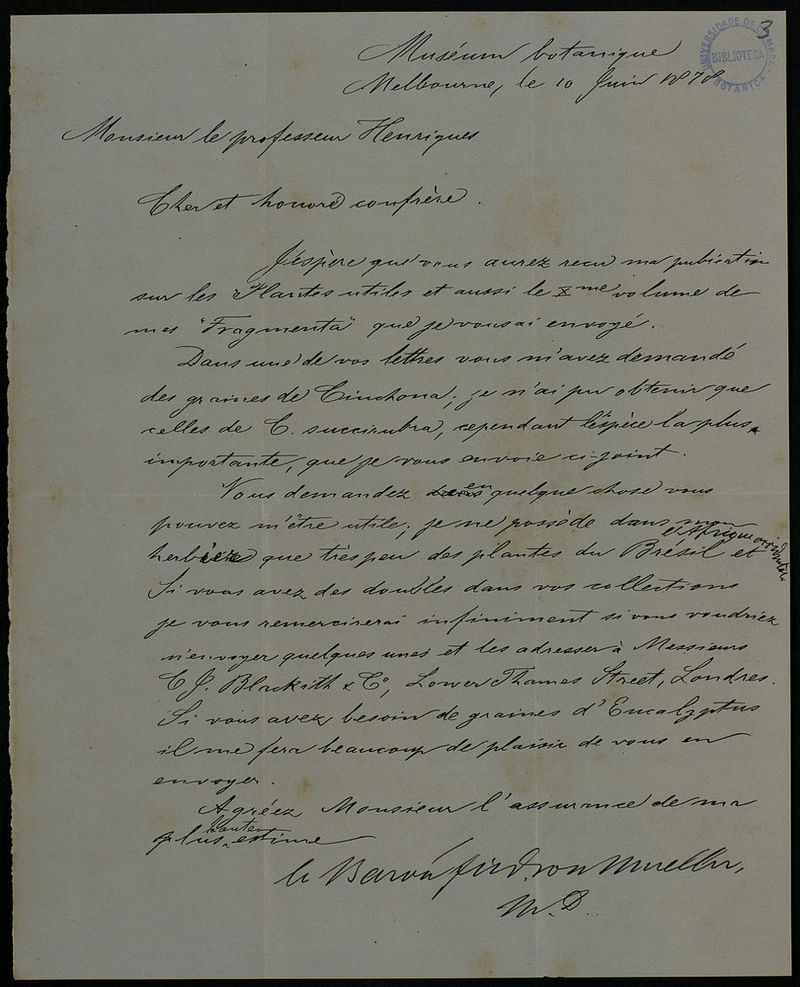 3
UNIVERSIDADE DE COIMBRA
BIBLIOTECA
BOTANICA
Muséum botanique
Melbourne, le 10 Juin 1878
Monsieur le professeur Henriques
Cher et honoré confrère.
J'éspère que vous aurez recu ma publication
sur les Plantes utiles et aussi le Xme volume de
mes "Fragmenta" que je vous ai envoyé.
Dans une de vos lettres vous m'avez demandé
des graines de Cinchona; je n'ai pu obtenir que
celles de C. succirubra, cependant l'espèce la plus
importante, que je vous envoie ci-joint.
Vous demandez en quelque chose vous
pouvez m'être utile; je ne possède dans mon
herbier que très peu des plantes du Brésil et
d'Afrique occidentale
Si vous avez des doubles dans vos collections
je vous remercirerai infiniment si vous voudriez
m'envoyer quelques unes et les adresser à Messieurs
C J. Blackith & Co, Lower Thames Street, Londres.
Si vous avez besoin de graines d'Eucalyptus
il me fera beaucoup de plaisir de vous en
envoyer.
Agréez Monsieur l'assurance de ma
plus haute estime
le Baron ferd. von Mueller,
M.D.